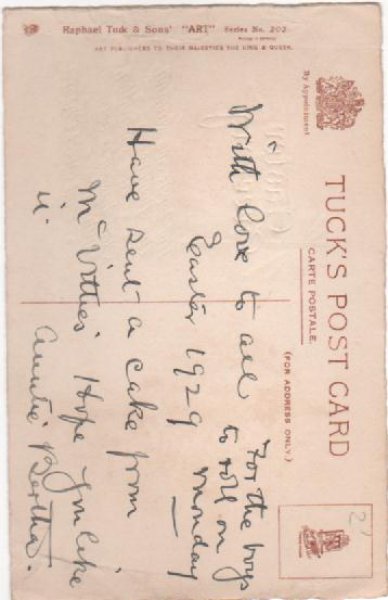 Raphael Tuck & Sons' "ART" Series No. 202.
ART PUBLISHERS TO THEIR MAJESTIES THE KING & QUEEN.
By Appointment.
TUCK'S POST CARD
CARTE POSTALE.
(FOR ADDRESS ONLY.)
With love to all
Easter 1929
Have sent a cake from
Mc Vitties' Hope you like
it.
Auntie Bertha.
For the boys
to roll on
Monday